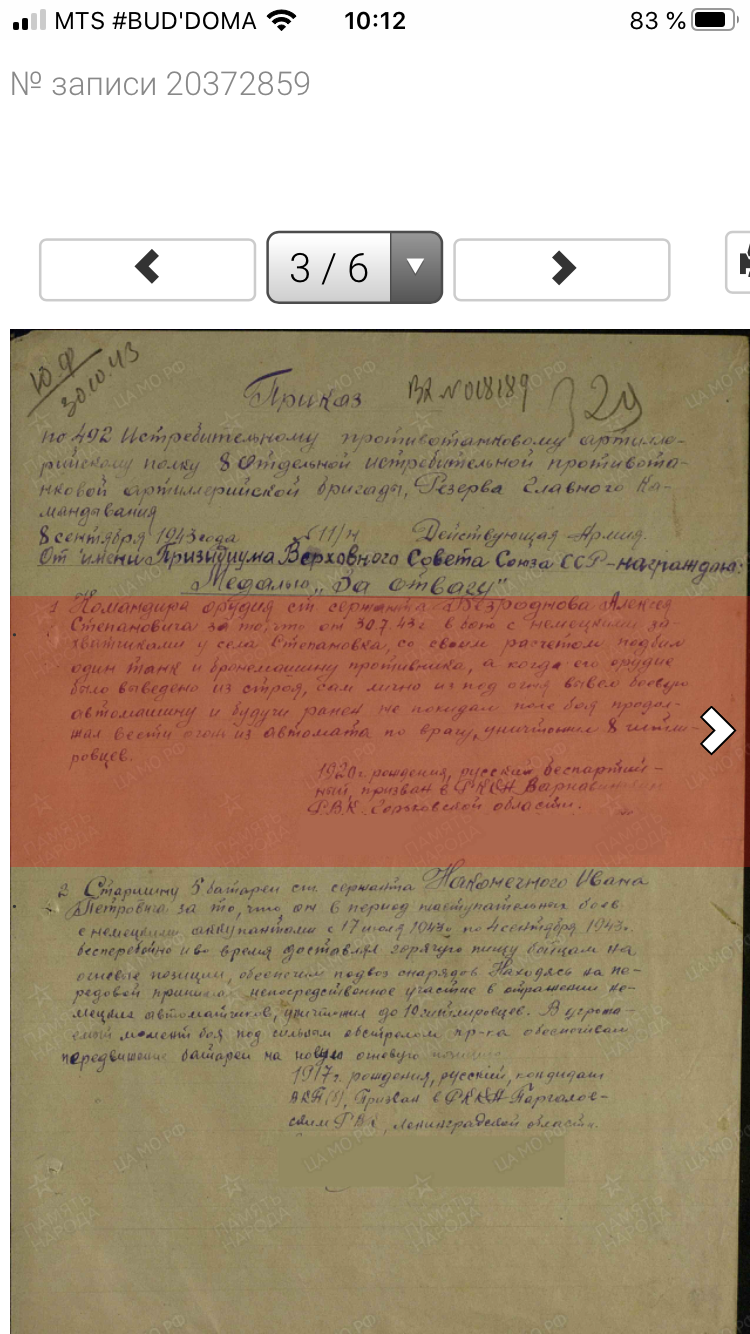 MTS #BUD'DOMA 10:12 83 %
№ записи 20372859
3 / 6
30.10.43
Приказ ВХ N 018189 29
по 492 Истребительному противотанковому артилле-
рийскому полку 8 Отдельной истребительной противота-
нковой артиллерийской бригады, Резерва Главного Ка-
мандавания
8 сентября 1943 года 11/н Действующая Армия.
От имени Призидиума Верховного Совета Союза ССР - награждаю:
Медалью „За отвагу"
1 Командира орудия ст сержанта Безроднова Алексея
Степановича за то, что он 30.7.43г. в бою с немецкими за-
хватчиками у села Степановка, со своим расчетом подбил
один танк и бронемашину противника, а когда его орудие
было выведено из строя, сам лично из под огня вывел боевую
автомашину и будучи ранен не покидал поле боя продол-
жал вести огонь из автомата по врагу, уничтожил 8 гитле-
ровцев.
1920г. рождения, русский, беспартий-
ный, призван в РККА
РВК Горьковской области.
2 Старшину 5 батареи ст. сержанта Наконечного Ивана
Петровича за то, что он в период наступательных боев
с немецкими оккупантами с 17 июля 1943г. по 4 сентября 1943г.
бесперебойно и во время доставлял горячую пищу бойцам на
огневые позиции, обеспечил подвоз снарядов Находясь на пе-
редовой принимал непосредственное участие в отражении не-
мецких автоматчиков, уничтожил до 10 гитлеровцев. В угрожа-
емый момент боя под сильным обстрелом пр-ка обеспечивал
передвижение батареи на новую огневую позицию
1917г. рождения, русский, кандидат
ВКП(б), Призван в РККА Парголов-
ским РВК, Ленинградской области.
ЦА МО РФ
ПАМЯТЬ НАРОДА